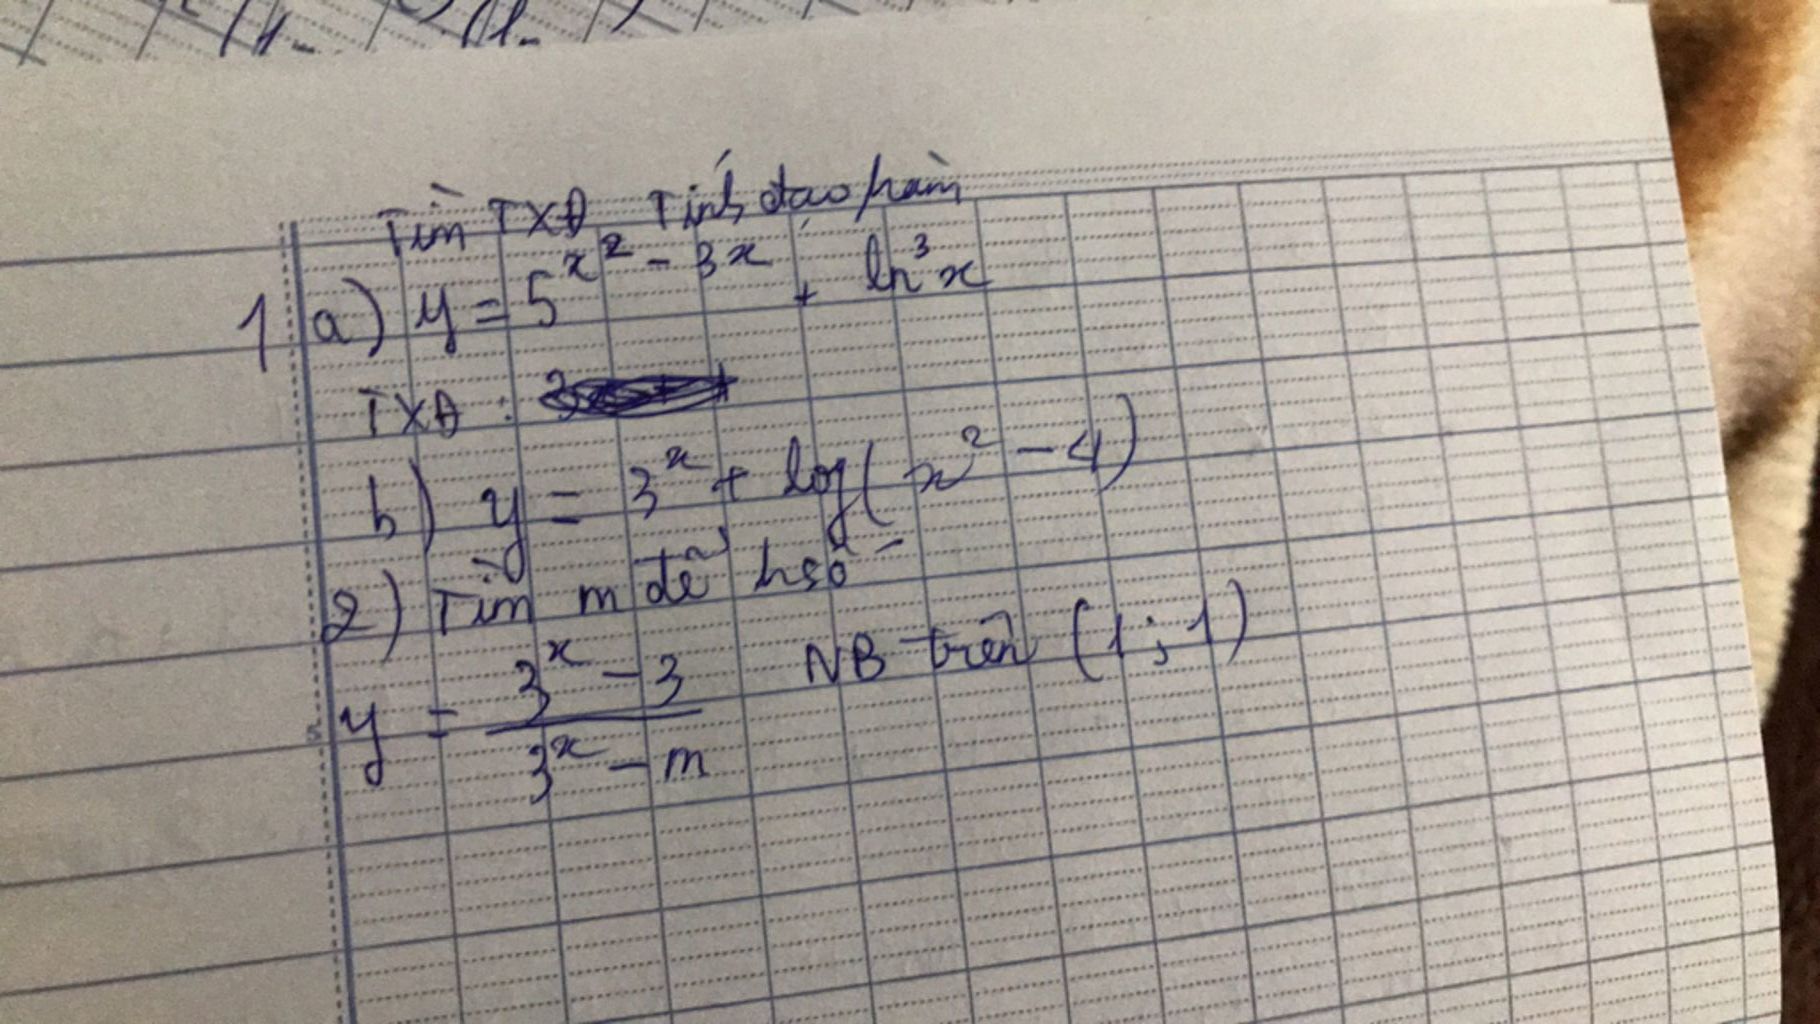 Tìm TXĐ Tính đạo hàm
1 a) y = 5^{x^2 - 3x} + ln^3 x
TXĐ :
b) y = 3^x + log(x^2 - 4)
2) Tìm m để hsố
y = \frac{3^x - 3}{3^x - m} NB trên (1; 1)